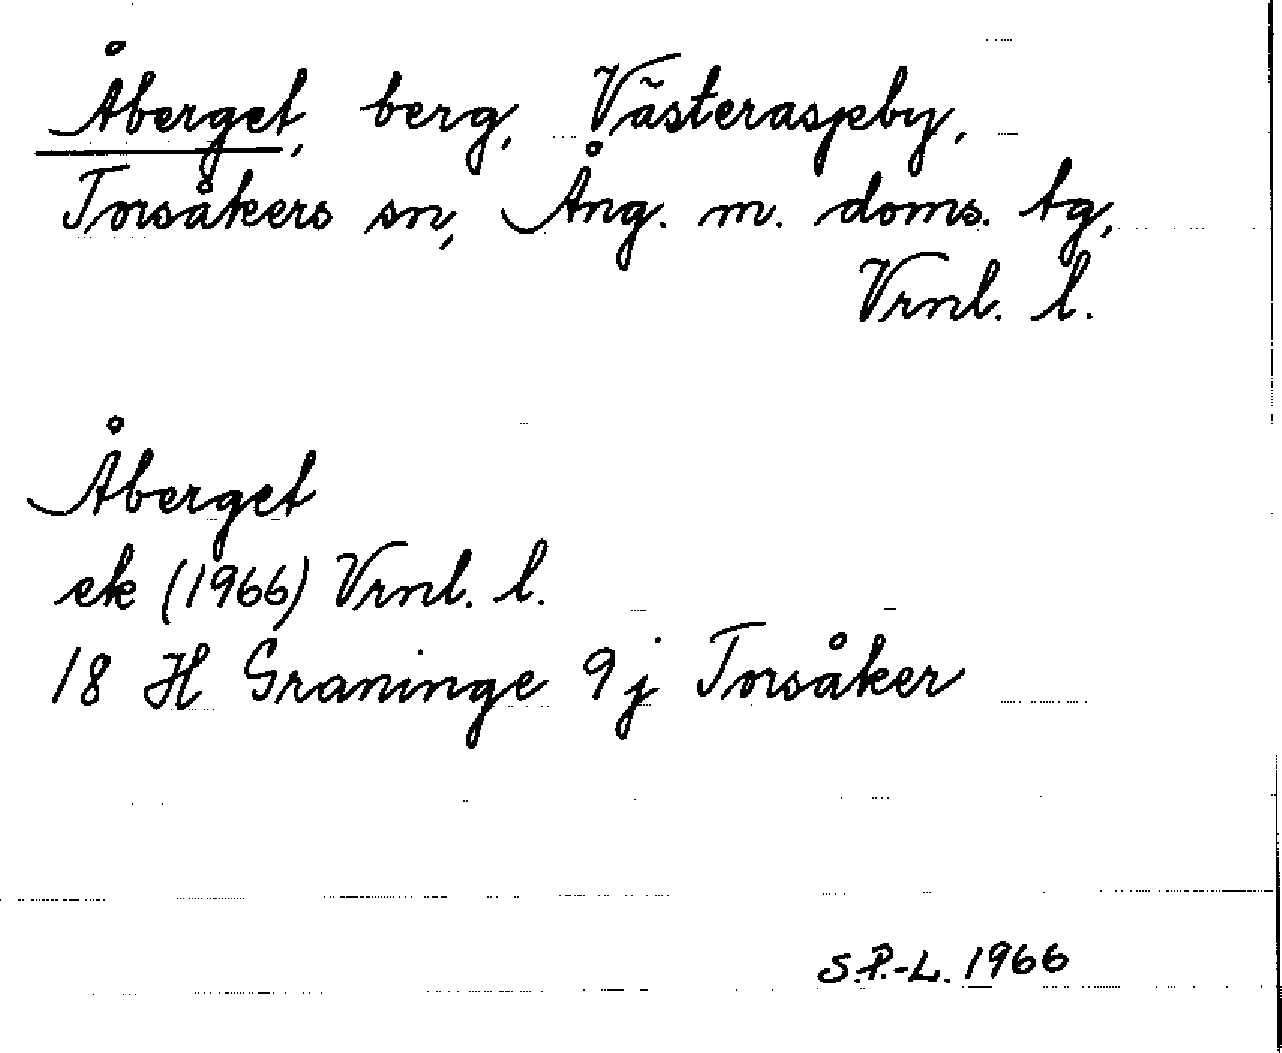 Åberget, berg, Västeraspby,
Torsåkers sn, Ång. m. doms. tg,
Vrnl. l.
Åberget
ek (1966) Vrnl. l.
18 H Graninge 9j Torsåker
S.P.-L. 1966